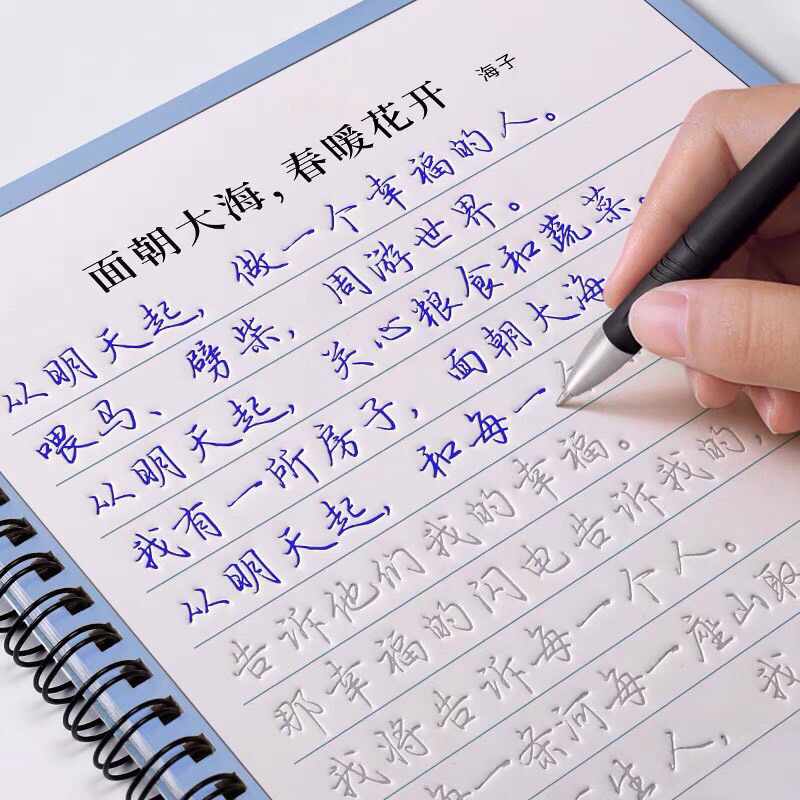 面朝大海，春暖花开 海子
从明天起，做一个幸福的人。
喂马、劈柴，周游世界。
从明天起，关心粮食和蔬菜。
我有一所房子，面朝大海
从明天起，和每一
告诉他们我的幸福。
那幸福的闪电告诉我的，
我将告诉每一个人。
每一条河每一座山取
生人，我